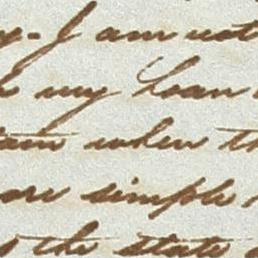 y. I am not
my loan
when th
are simple
the state